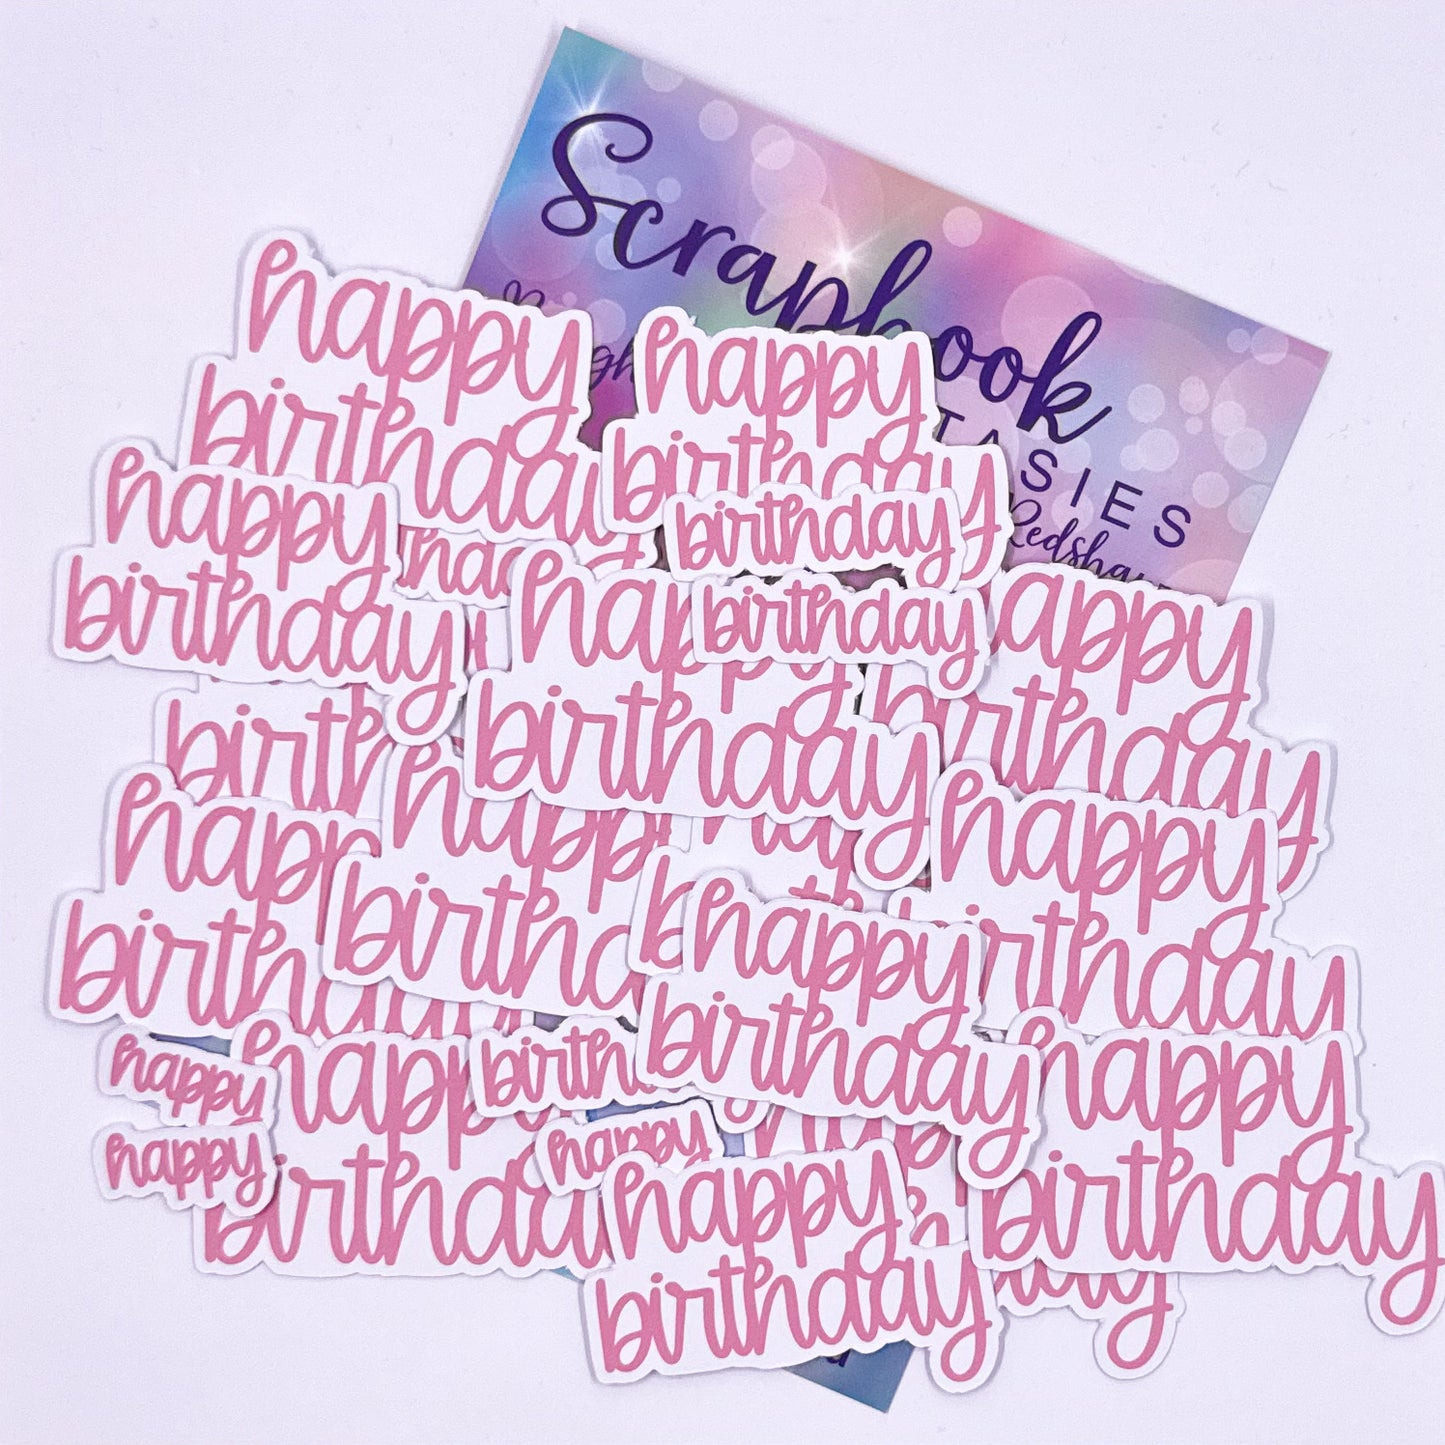 Scrapbook
happy
birthday
happy
birthday
birthday
happy
birthday
birthday
happy
birthday
happy
birthday
happy
birthday
happy
birthday
happy
birthday
happy
birthday
happy
happy
happy
birthday
happy
happy
birthday
happy
birthday